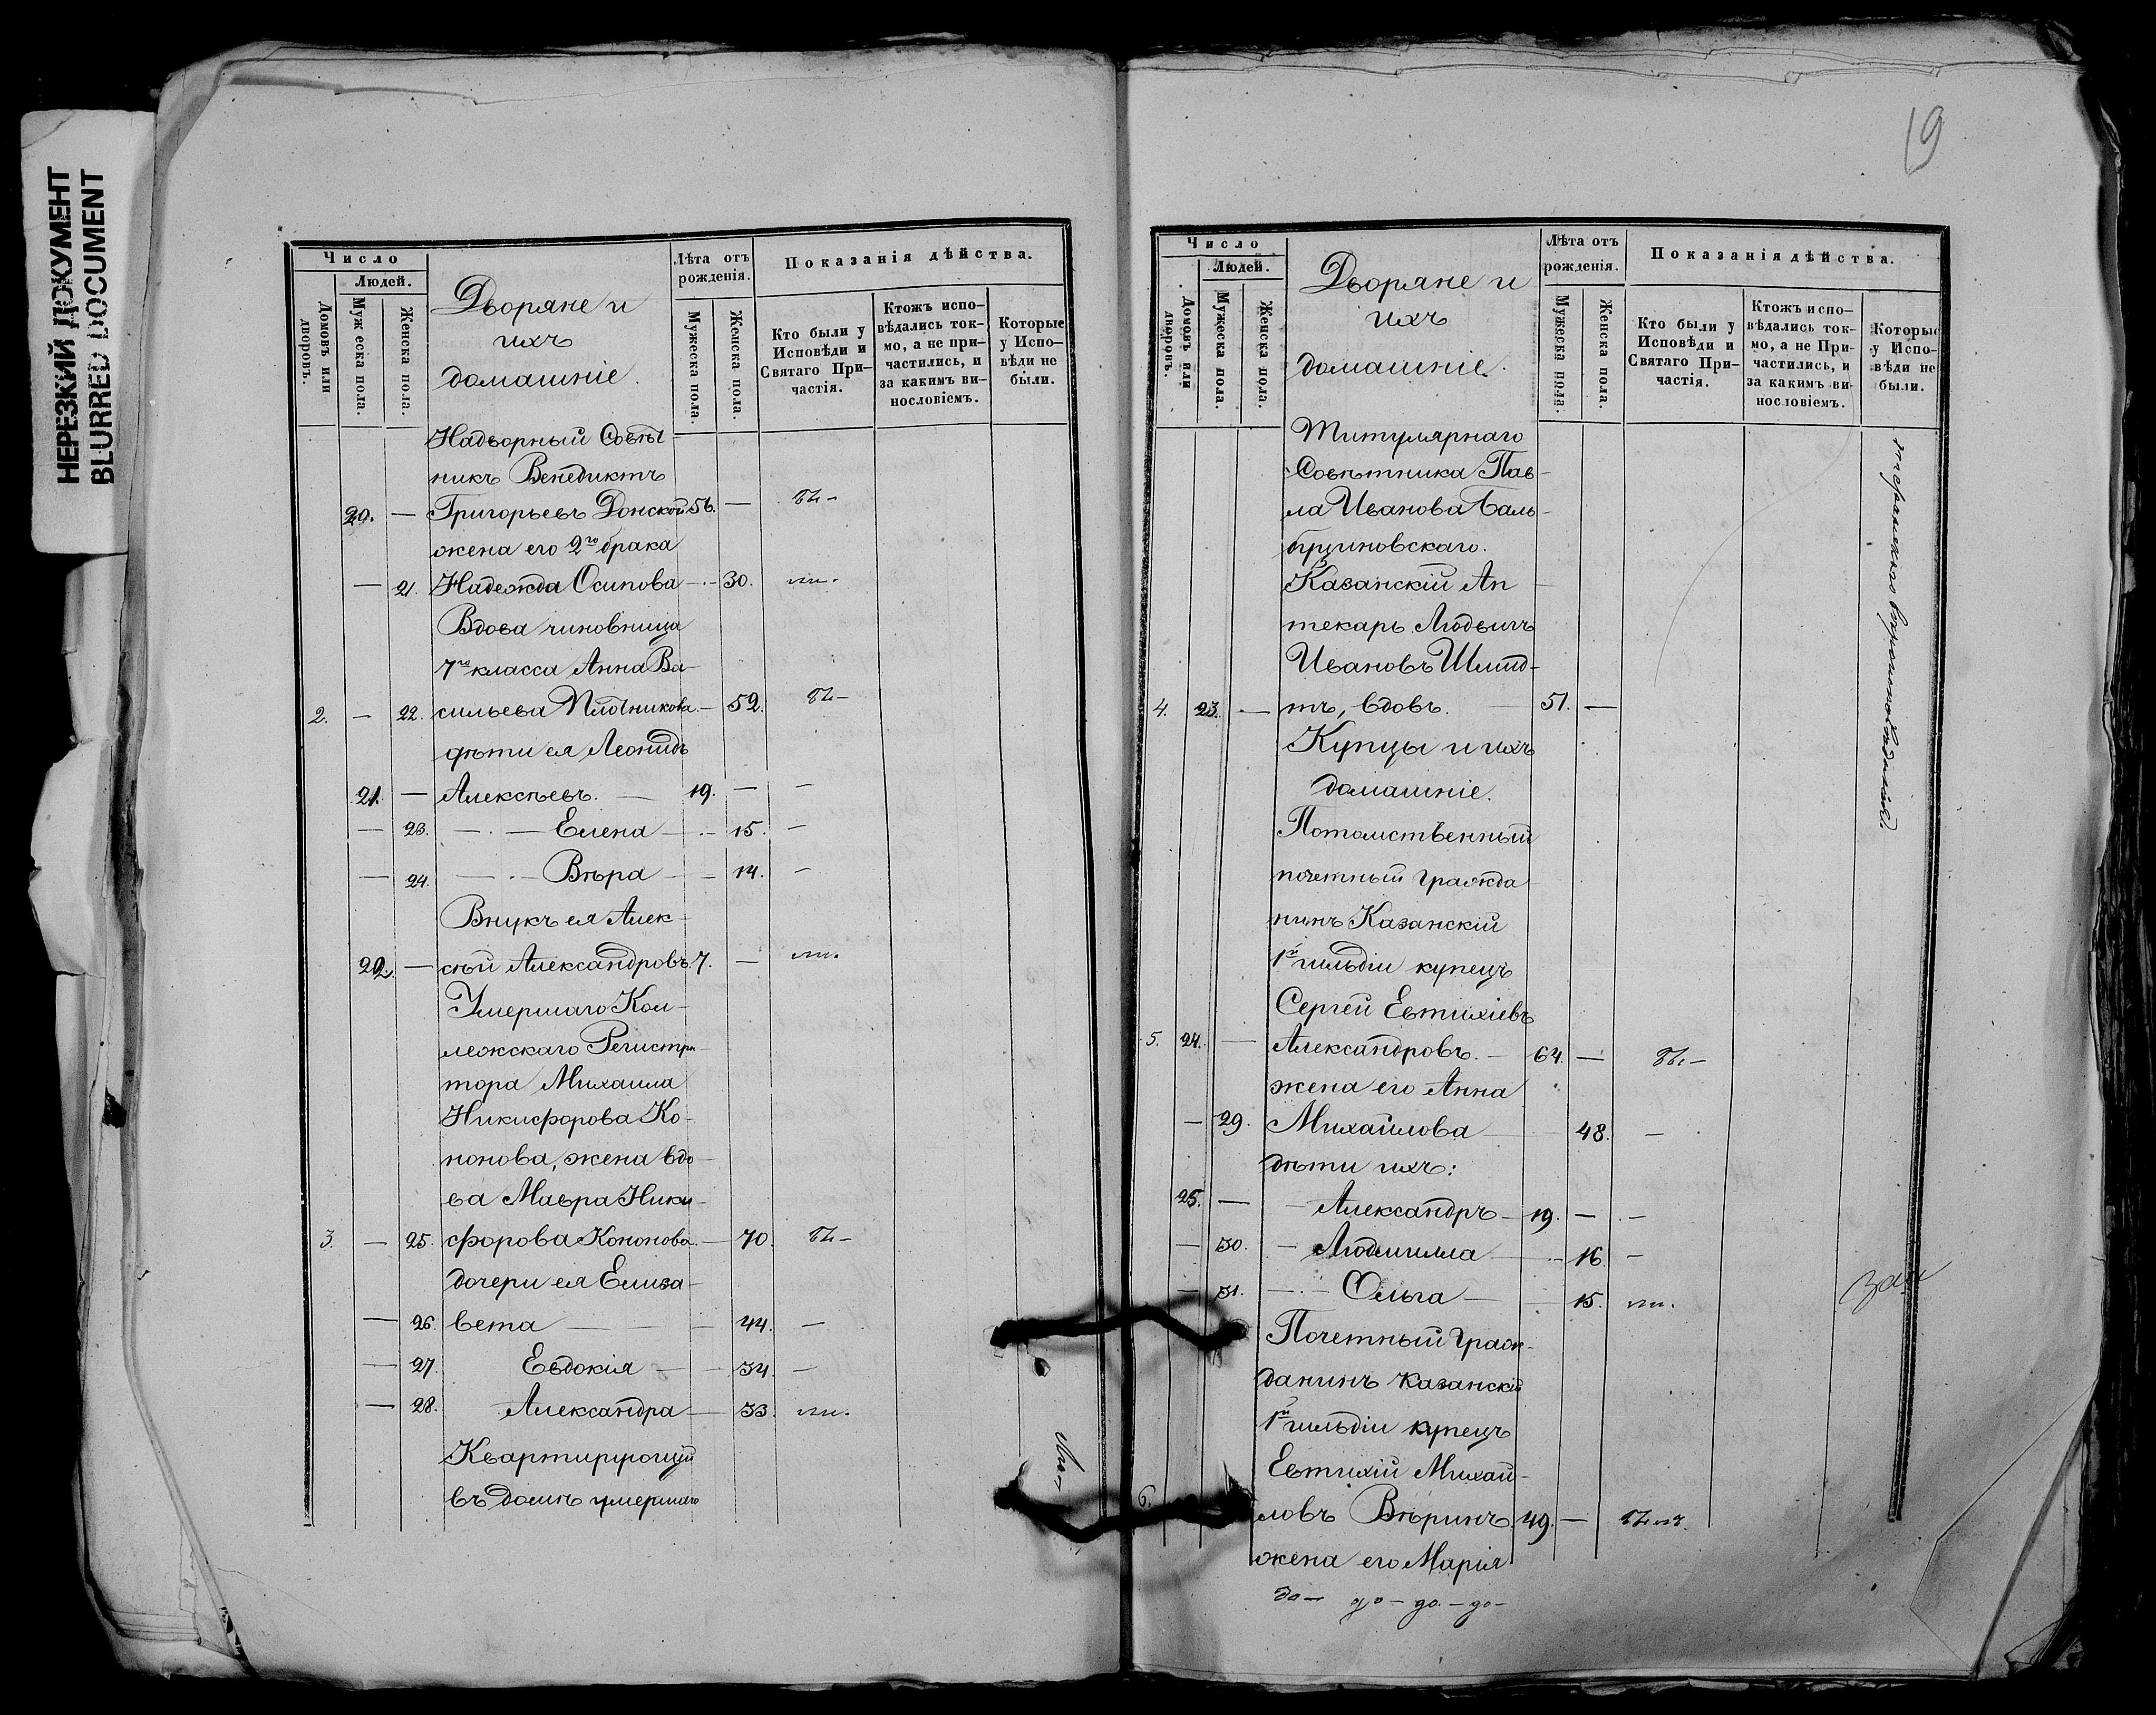 НЕРЕЗКИЙ ДОКУМЕНТ
BLURRED DOCUMENT
Число
Людей.
Домовъ или дворовъ.
Мужеска пола.
Женска пола.
Дворяне и
ихъ
домашніе.
Лѣта отъ
рожденія.
Мужеска пола
Женска пола.
Показанія дѣйства.
Кто были у
Исповѣди и
Святаго При-
частія.
Ктожъ испо-
вѣдались ток-
мо, а не при-
частились, и
за какимъ ви-
нословіемъ.
Которые
у Испо-
вѣди не
были.
Надворный Совѣт
никъ Венедиктъ
20. — Григорьевъ Донской 56. —
жена его 2го брака
— 21. Надежда Осипова — 30.
Вдова чиновница
7го класса Анна Ва-
2. — 22. сильева Плотникова. — 52.
дѣти ея Леонидъ
21. — Алексѣевъ. — 19. — —
— 23. — Елена — 15. —
— 24. — Вѣра — 14. —
Внукъ ея Алек-
22. — сѣй Александровъ. 7. —
Умершаго Кол-
лежскаго Регистра-
тора Михаила
Никифорова Ко-
нонова, жена вдо-
ва Мавра Ники-
3. — 25. форова Кононова. — 70.
дочери ея Елиза-
— 26. вета — 44. —
— 27. Евдокія — 34. —
— 28. Александра — 33.
Квартирующій
въ домѣ умершаго
19
Число
Людей.
Домовъ или дворовъ.
Мужеска пола.
Женска пола.
Дворяне и
ихъ
домашніе.
Лѣта отъ
рожденія.
Мужеска пола.
Женска пола.
Показанія дѣйства.
Кто были у
Исповѣди и
Святаго При-
частія.
Ктожъ испо-
вѣдались ток-
мо, а не При-
частились, и
за какимъ ви-
нословіемъ.
Которые
у Испо-
вѣди не
были.
Титулярнаго
Совѣтника Пав-
ла Иванова
Казанскій Ап-
текарь Людвигъ
Ивановъ Шмид-
4. 23. — тъ, вдовъ. — 51. —
Купцы и ихъ
домашніе.
Потомственный
почетный гражда
нинъ Казанскій
1й гильдіи купецъ
Сергей Евтихіевъ
5. 24. — Александровъ. — 64. —
жена его Анна
— 29. Михайлова — 48. —
дѣти ихъ:
25. — Александръ — 19. — —
— 30. — Людмила — 16. —
— 31. — Ольга — 15.
Почетный граж-
данинъ Казанскій
1й гильдіи купецъ
Евтихій Михай-
6. ловъ Вѣринъ. 49. —
жена его Марія